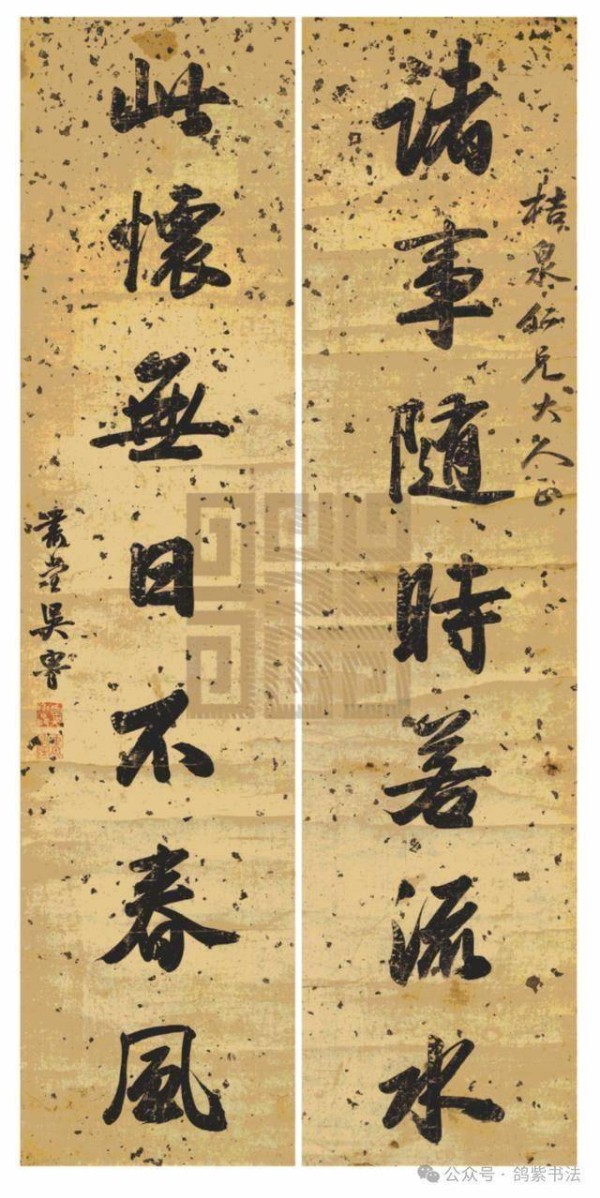 桔泉仁兄大人正
諸事隨時若流水
此懷無日不春風
肅堂吳魯
公众号 · 鸽紫书法